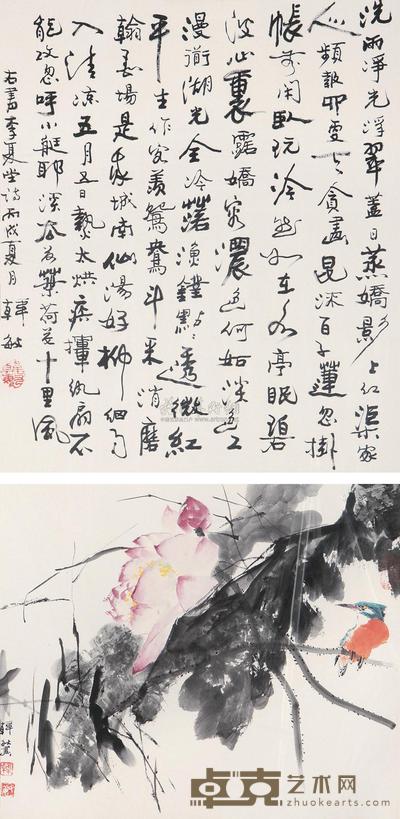 洗雨淨光浮翠蓋日蒸嬌影上紅渠家
人頻報貪畫昆深百子蓮忽掛
帳前閑臥玩泠然如在水亭眠碧
波心裏露嬌容濃色何如淡色工
漫衍湖光全冷落漁鐙點點透微紅
平生作客羨鴛鴦斗采消磨
翰墨場是城南仙湯好柳細雨
入清涼五月五日熱太烘疾揮紈扇不
能攻忽呼小艇耶溪荷花十里風
右書李复堂詩丙戌夏月 韓敏
卓克艺术网
www.zhuokearts.com